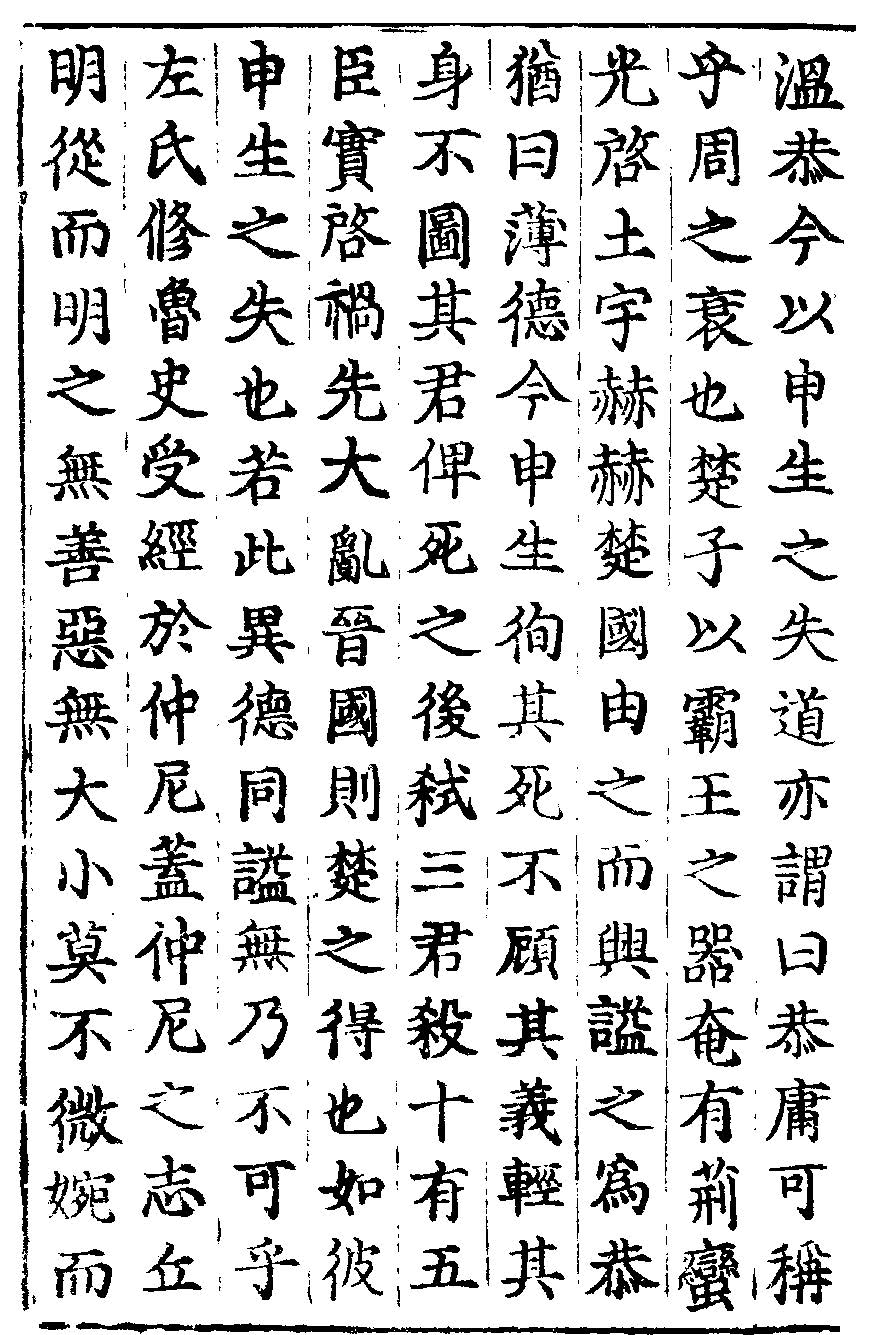 溫恭今以申生之失道亦謂曰恭庸可稱
乎周之衰也楚子以霸王之器奄有荊蠻
光啓土宇赫赫楚國由之而興謚之爲恭
猶曰薄德今申生徇其死不顧其義輕其
身不圖其君俾死之後弒三君殺十有五
臣實啓禍先大亂晉國則楚之得也如彼
申生之失也若此異德同謚無乃不可乎
左氏修魯史受經於仲尼蓋仲尼之志丘
明從而明之無善惡無大小莫不微婉而